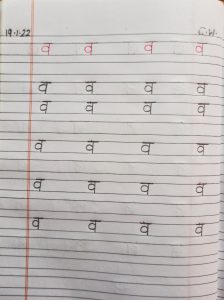 19.1.22 C.W.
व व व व
व व व व
व व व व
व व व व
व व व व
व व व व